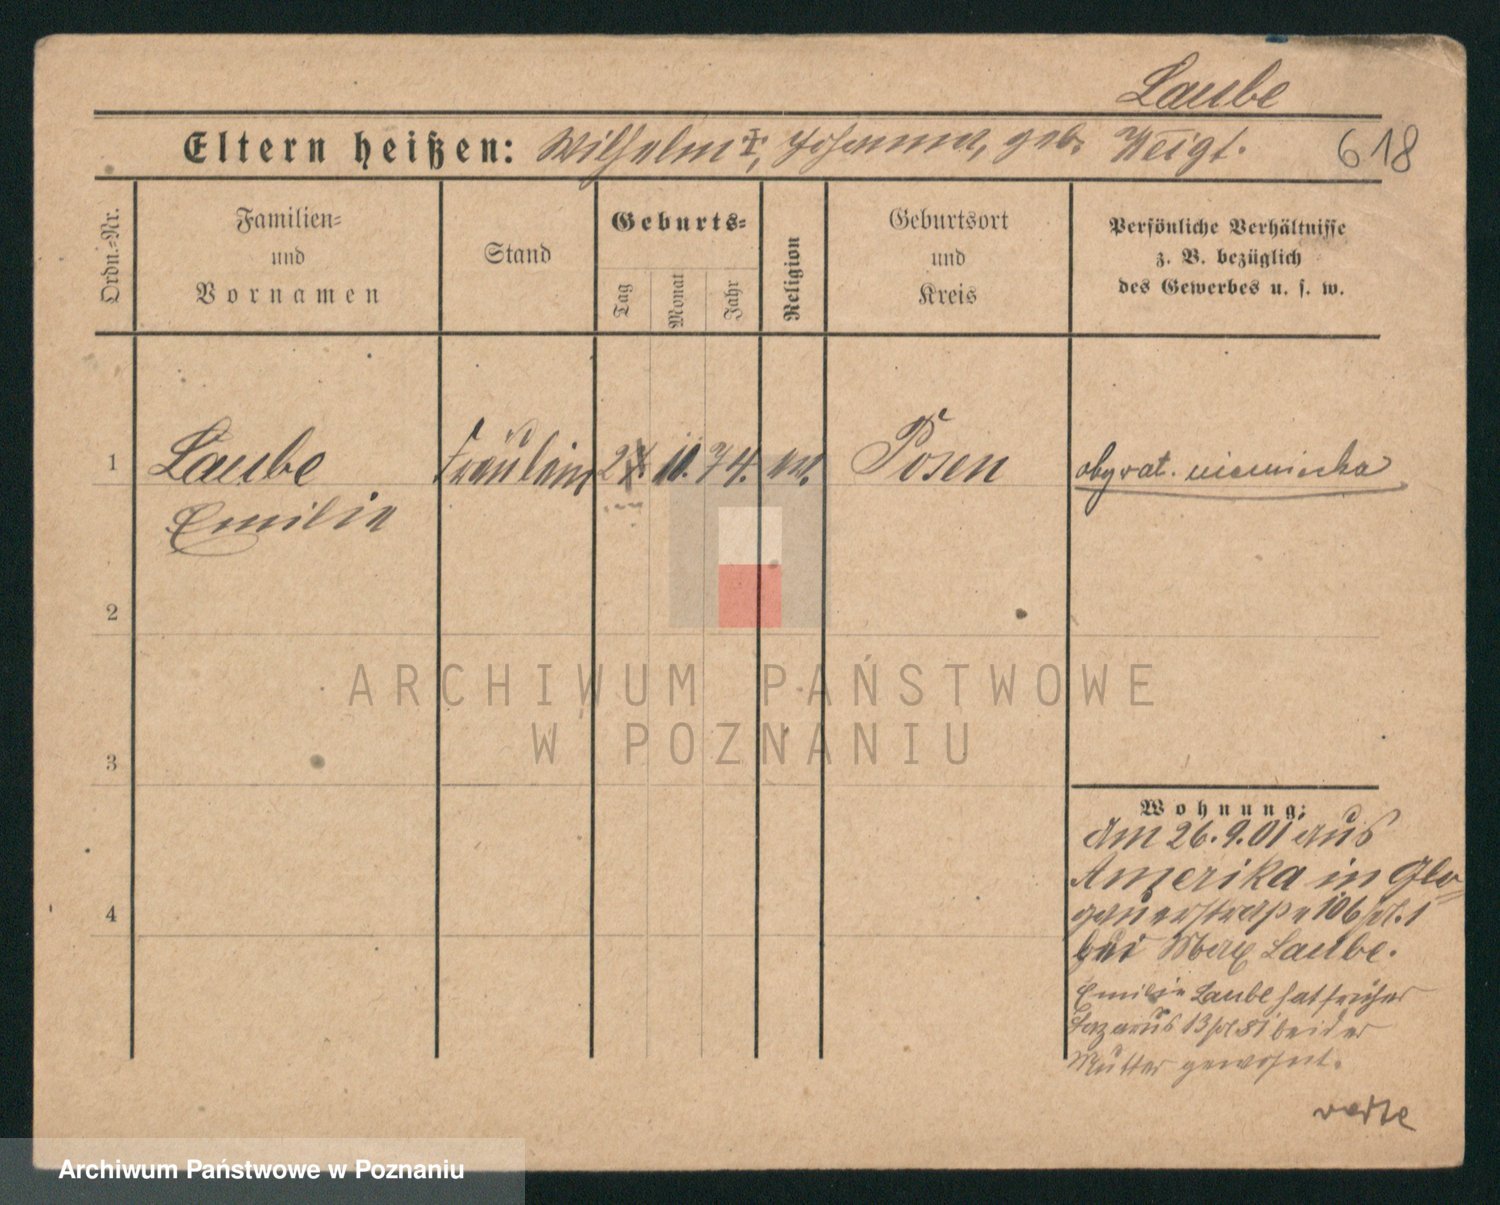 Laube
Eltern heißen: Wilhelm †, Johanna, geb. Weigt.
618
Ordn.-Nr.
Familien-
und
Vornamen
Stand
Geburts-
Tag
Monat
Jahr
Religion
Geburtsort
und
Kreis
Persönliche Verhältnisse
z. B. bezüglich
des Gewerbes u. s. w.
1
Laube
Emilie
Fräulein
11. 74. ev.
Posen
obywat. niemiecka
2
3
4
Wohnung:
Am 26.9.01 aus
Amerika in Glo-
gauerstraße 106 pt. 1
bei Max Laube.
Emilie Laube hat früher
Lazarus 13 bei der
Mutter gewohnt.
verte
ARCHIWUM PAŃSTWOWE
W POZNANIU
Archiwum Państwowe w Poznaniu